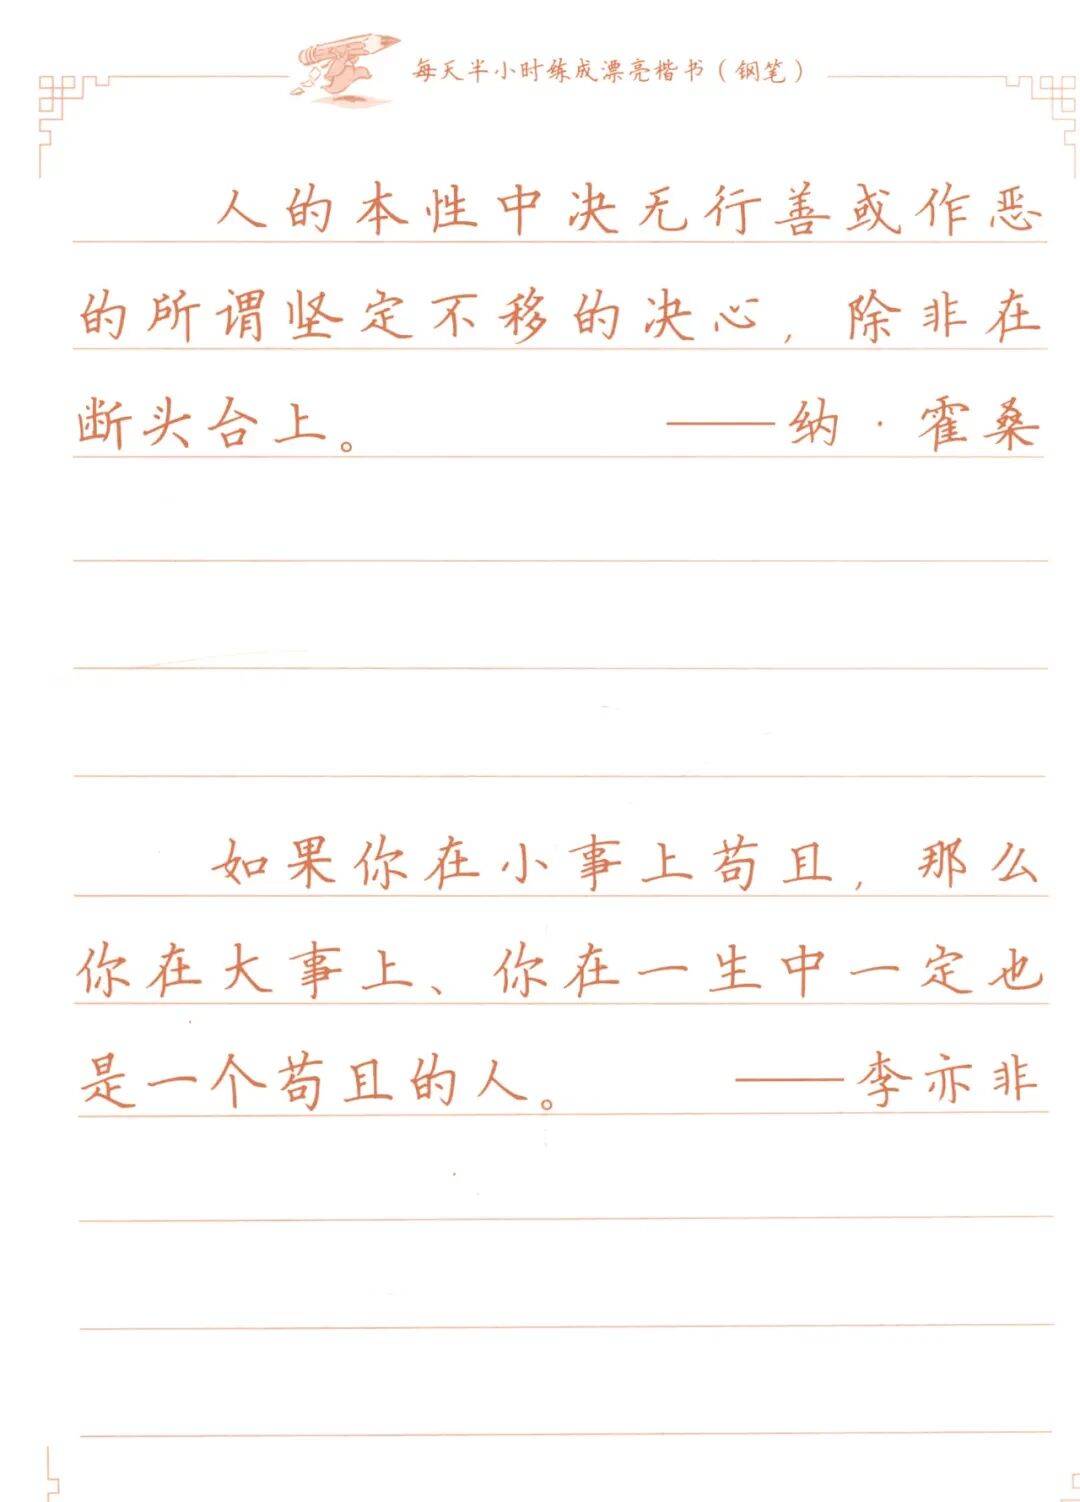 每天半小时练成漂亮楷书（钢笔）
人的本性中决无行善或作恶
的所谓坚定不移的决心，除非在
断头台上。 ——纳·霍桑
如果你在小事上苟且，那么
你在大事上、你在一生中一定也
是一个苟且的人。 ——李亦非